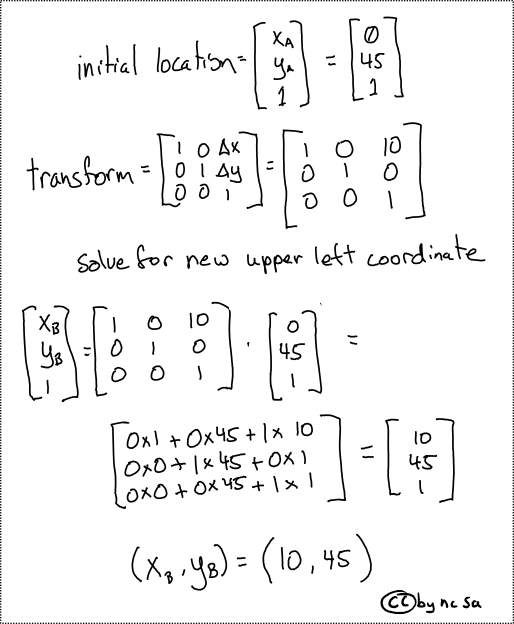 initial location = [x_A y_A 1] = [0 45 1]
transform = [1 0 Δx; 0 1 Δy; 0 0 1] = [1 0 10; 0 1 0; 0 0 1]
solve for new upper left coordinate
[x_B y_B 1] = [1 0 10; 0 1 0; 0 0 1] · [0 45 1] =
[0x1 + 0x45 + 1x 10
0x0 + 1x45 + 0x1
0x0 + 0x45 + 1x1] = [10 45 1]
(x_B, y_B) = (10, 45)
CC by nc sa